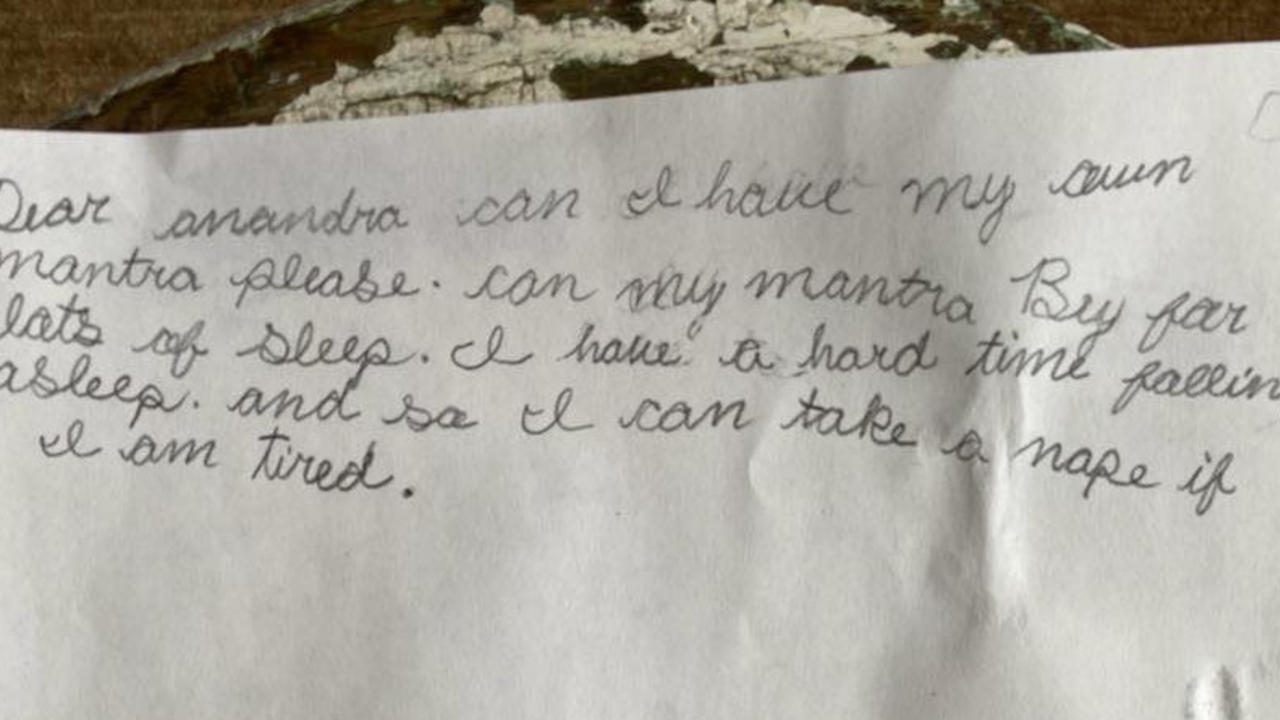 Dear anandra can I have my own
mantra please. can my mantra Bey for
lots of sleep. I have a hard time fallin
asleep. and so I can take a nape if
I am tired.